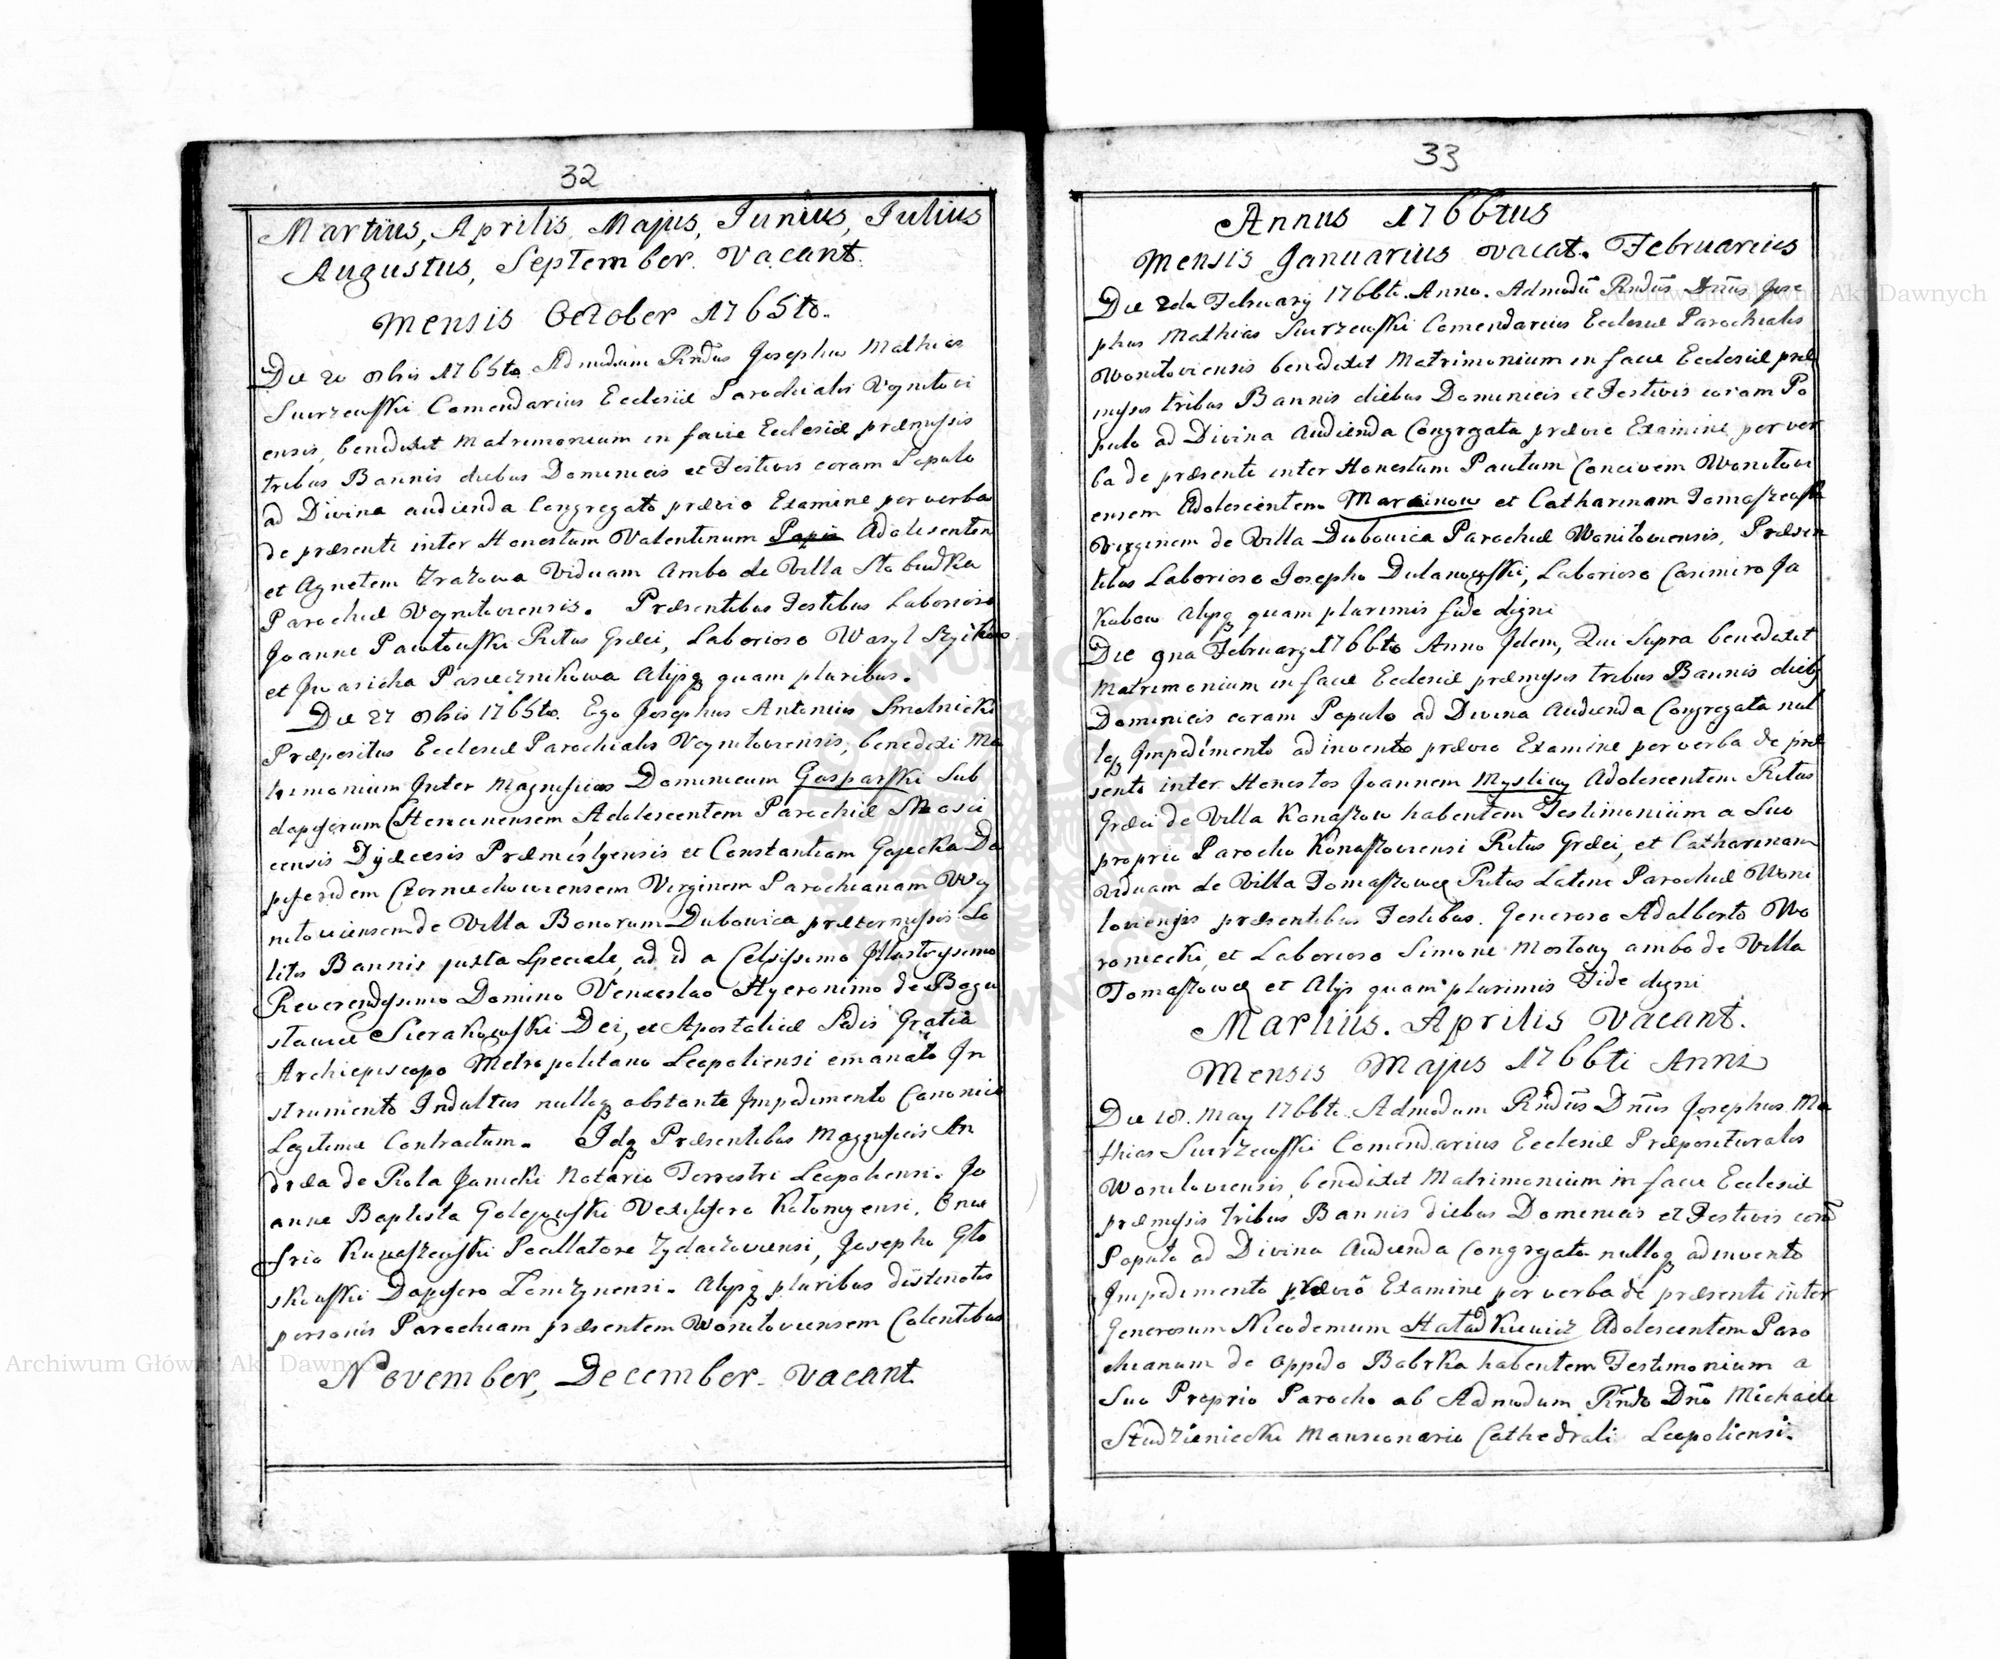 32
Martius, Aprilis, Majus, Junius, Julius
Augustus, September. Vacant.
Mensis October 1765to.
Die 20 8bris 1765to. Admodum Rndus Josephus Mathias
Swirzewski Comendarius Ecclesiæ Parochialis Voynitovi
ensis, benedixit Matrimonium in facie Ecclesiæ præmissis
tribus Bannis diebus Dominicis et Festivis coram Populo
ad Divina audienda Congregato prævio Examine per verba
de præsenti inter Honestum Valentinum Adolescentem
et Agnetem Viduam Ambo de Villa
Parochiæ Voynitoviensis. Præsentibus Testibus Laborioso
Joanne Pawłowski Ritus Græci, Laborioso Wasyl
et Pasiecznikowa Alijsq quam pluribus.
Die 27 8bris 1765to. Ego Josephus Antonius Smolnicki
Præpositus Ecclesiæ Parochialis Voynitoviensis, benedixi Ma
trimonium Inter Magnificos Dominicum Gasparski Sub
dapiferum Adolescentem Parochiæ Mosci
censis Dyæcesis Præmislyensis et Constantiam Da
piferidem Czerniechoviensem Virginem Parochianam Woy
nitoviensem de Villa Bonorum Dubovica prætermissis So
litis Bannis juxta Speciale, ad id a Celsissimo Illustrissimo
Reverendissimo Domino Venceslao Hyeronimo de Bogu
stawice Sierakowski Dei, et Apostolicæ Sedis Gratia
Archiepiscopo Metropolitano Leopoliensi emanato In
strumento Indultus nulloq obstante Impedimento Canonico
Legitime Contractum. Idq Præsentibus Magnificis An
drea de Rola Janicki Notario Terrestri Leopoliensi. Jo
anne Baptista Golejowski Vexillifero Kołomyensi, Onu
frio Pocillatore Zydaczoviensi, Josepho Gło
skowski Dapifero Lomzynensi. Alijsq pluribus distinctis
personis Parochiam præsentem Wonitoviensem Colentibus
November, December. vacant.
33
Annus 1766tus
Mensis Januarius vacat. Februarius
Die 2da February 1766to. Anno. Admodū Rndūs Dnūs Jose
phus Mathias Swirzewski Comendarius Ecclesiæ Parochialis
Wonitoviensis benedixit Matrimonium in facie Ecclesiæ præ
missis tribus Bannis diebus Dominicis et Festivis coram Po
pulo ad Divina Audienda Congregata prævio Examine per ver
ba de præsenti inter Honestum Paulum Concivem Wonitovi
ensem Adolescentem Marcinow et Catharinam Tomaszewsk
Virginem de Villa Dubovica Parochiæ Wonitoviensis, Præsen
tibus Laborioso Josepho Dulanowski, Laborioso Casimiro Ja
kubow Alijsq quam plurimis fide digni
Die 9na February 1766to Anno Idem, Qui Supra benedixit
Matrimonium in facie Ecclesiæ præmissis tribus Bannis dieb9
Dominicis coram Populo ad Divina Audienda Congregata nul
loq Impedimento adinvento prævio Examine per verba de præ
senti inter Honestos Joannem Mysliwy Adolescentem Ritus
Græci de Villa Konaszow habentem Testimonium a Suo
proprio Parocho Konaszoviensi Ritus Græci, et Catharinam
Viduam de Villa Tomaszowce Ritus Latini Parochiæ Woni
toviensis præsentibus Testibus. Generoso Adalberto Wo
roniecki, et Laborioso Simone Mostowy ambo de Villa
Tomaszowce et Alijs quam plurimis Fide digni
Martius. Aprilis Vacant.
Mensis Majus 1766ti Anni
Die 18. May 1766to. Admodum Rndūs Dnūs Josephus Ma
thias Swirzewski Comendarius Ecclesiæ Præposituralis
Wonitoviensis, benedixit Matrimonium in facie Ecclesiæ
præmissis tribus Bannis diebus Dominicis et Festivis corā
Populo ad Divina Audienda Congregata nulloq adinvento
Impedimento prævio Examine per verba de præsenti inter
Generosum Nicodemum Hatadkiewicz Adolescentem Paro
chianum de Oppido Bobrka habentem Testimonium a
Suo Proprio Parocho ab Admodum Rndo Dno Michaele
Studzieniecki Mansionario Cathedrali Leopoliensi.
Archiwum Główne Akt Dawnych
Archiwum Główne Akt Dawnych